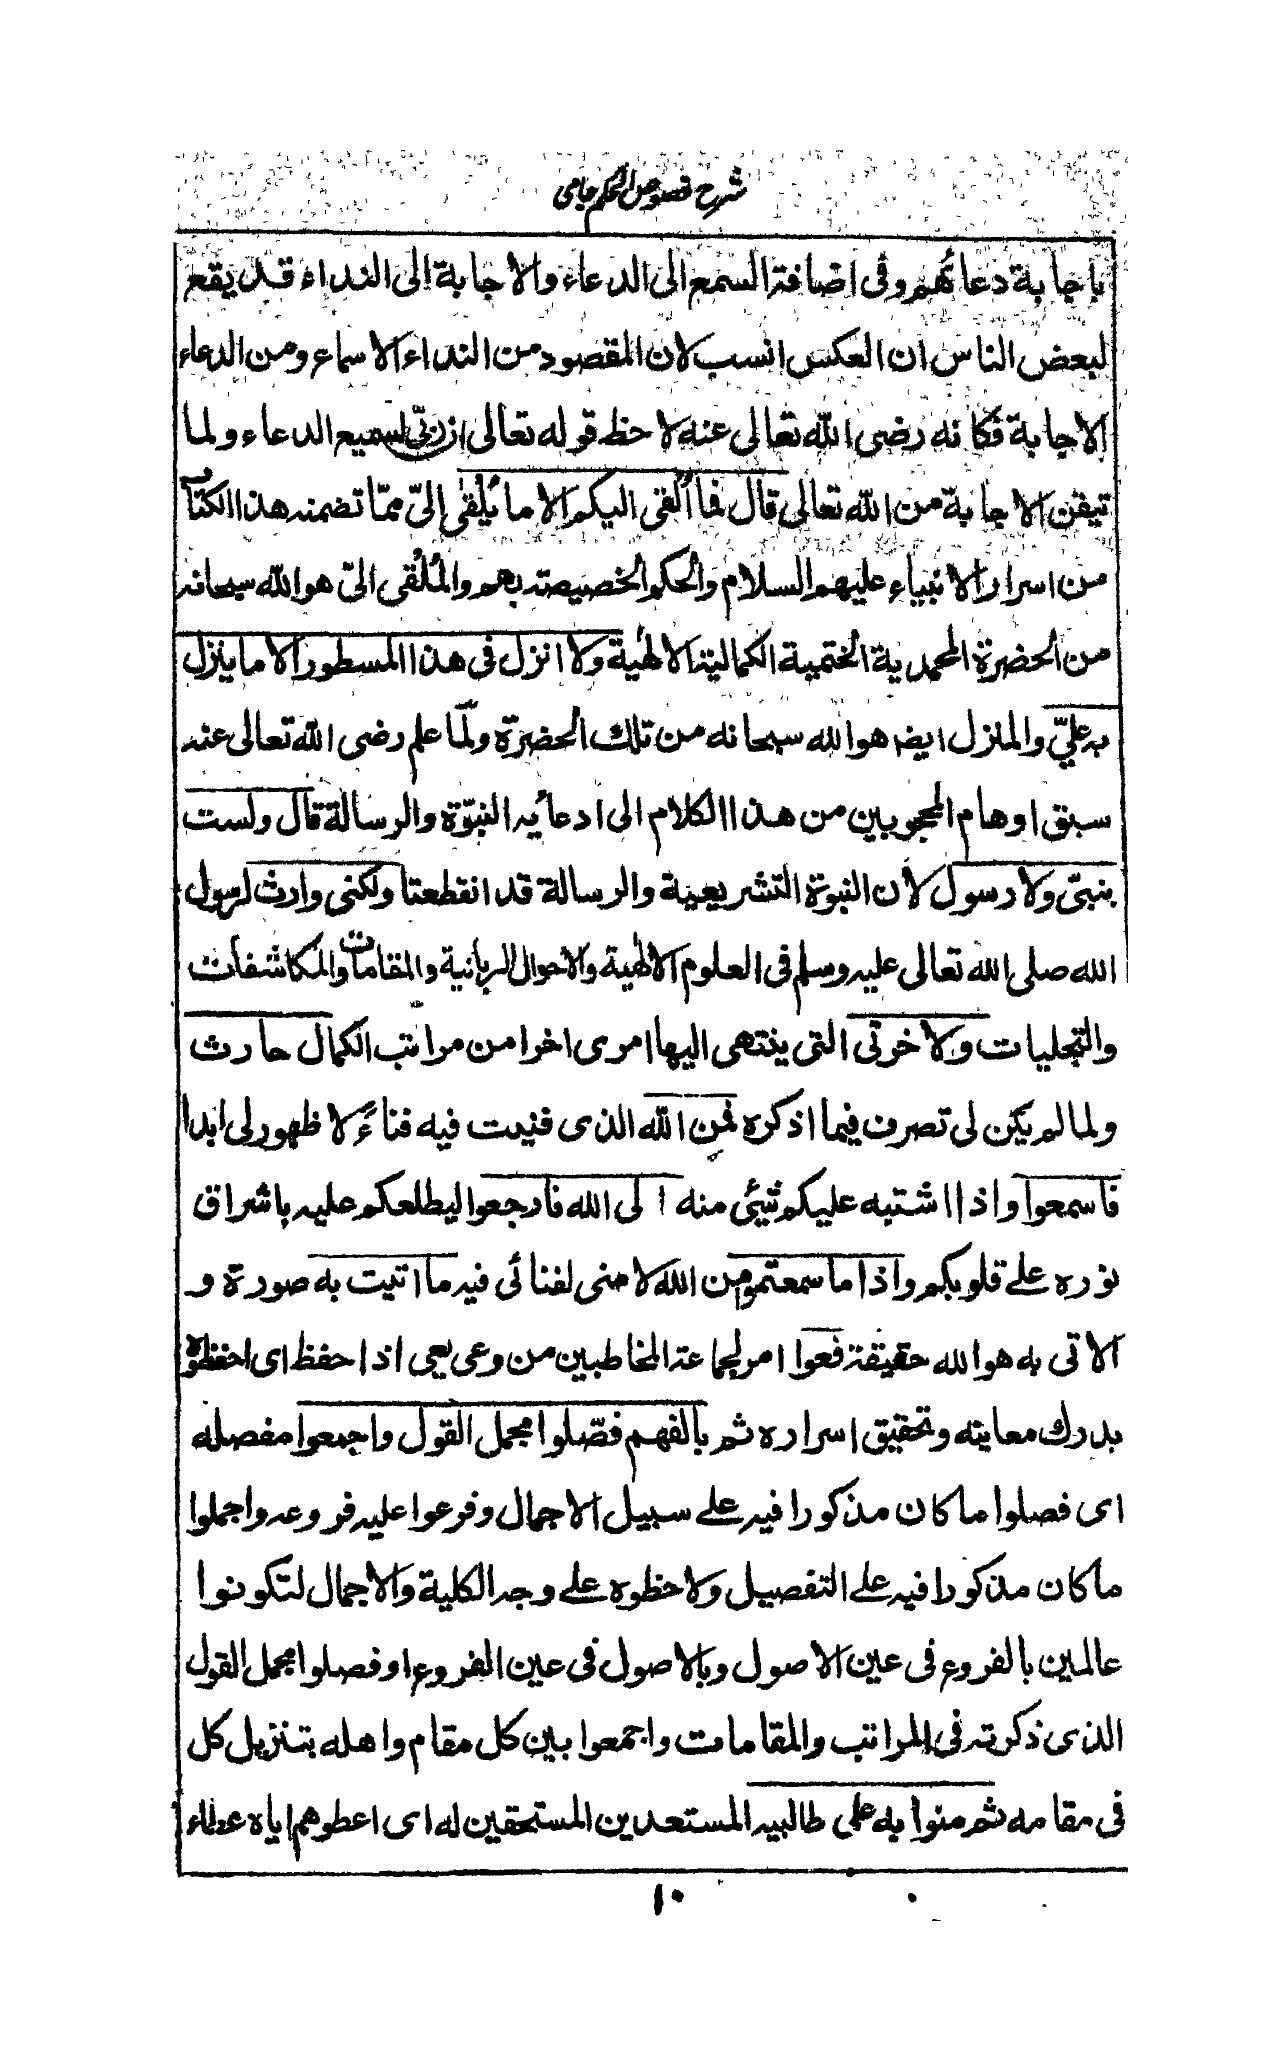 شرح فصوص الحكم جامى
باجابة دعائهم وفى اضافة السمع الى الدعاء والاجابة الى النداء قد يقع
لبعض الناس ان العكس انسب لان المقصود من النداء الاسماع ومن الدعاء
الاجابة فكانه رضى الله تعالى عنه لاحظ قوله تعالى ان ربى لسميع الدعاء ولما
تيقن الاجابة من الله تعالى قال فما أُلقى اليكم الا ما يُلقى إلىّ ممّا تضمنه هذا الكتاب
من اسرار الانبياء عليهم السلام والحكم الخصيصة بهم والمُلقى الىّ هو الله سبحانه
من الحضرة المحمدية الختمية الكمالية الالهية ولا انزل فى هذا المسطور الا ما ينزل
به علىّ والمنزل ايضا هو الله سبحانه من تلك الحضرة ولمّا علم رضى الله تعالى عنه
سبق اوهام المحجوبين من هذا الكلام الى ادعائه النبوّة والرسالة قال ولست
بنبىّ ولا رسول لأن النبوة التشريعية والرسالة قد انقطعتا ولكنى وارث لرسول
الله صلى الله تعالى عليه وسلم فى العلوم الالهية والاحوال الربانية والمقامات والمكاشفات
والتجليات ولاخرتى التى ينتهى اليها امرى اخرا من مراتب الكمال حارث
ولما لم يكن لى تصرف فيما اذكره فمن الله الذى فنيت فيه فناءً لا ظهور لى ابدا
فاسمعوا واذا اشتبه عليكم شيئى منه الى الله فارجعوا ليطلعكم عليه باشراق
نوره على قلوبكم واذا ما سمعتموه من الله لا منى لفنائى فيه ما اتيت به صورة و
الاتى به هو الله حقيقة فعوا امر لجماعة المخاطبين من وعى يعى اذا حفظ اى احفظوه
بدرك معاينه وتحقيق اسراره ثم بالفهم فصّلوا مجمل القول واجمعوا مفصله
اى فصلوا ما كان مذكورا فيه على سبيل الاجمال وفرعوا عليه فروعه واجملوا
ما كان مذكورا فيه على التفصيل ولاحظوه على وجه الكلية والاجمال لتكونوا
عالمين بالفروع فى عين الاصول وبالاصول فى عين الفروع او فصلوا مجمل القول
الذى ذكرته فى المراتب والمقامات واجمعوا بين كل مقام واهله بتنزيل كل
فى مقامه ثم منوا به على طالبيه المستعدين المستحقين له اى اعطوهم اياه عطاء
١٠